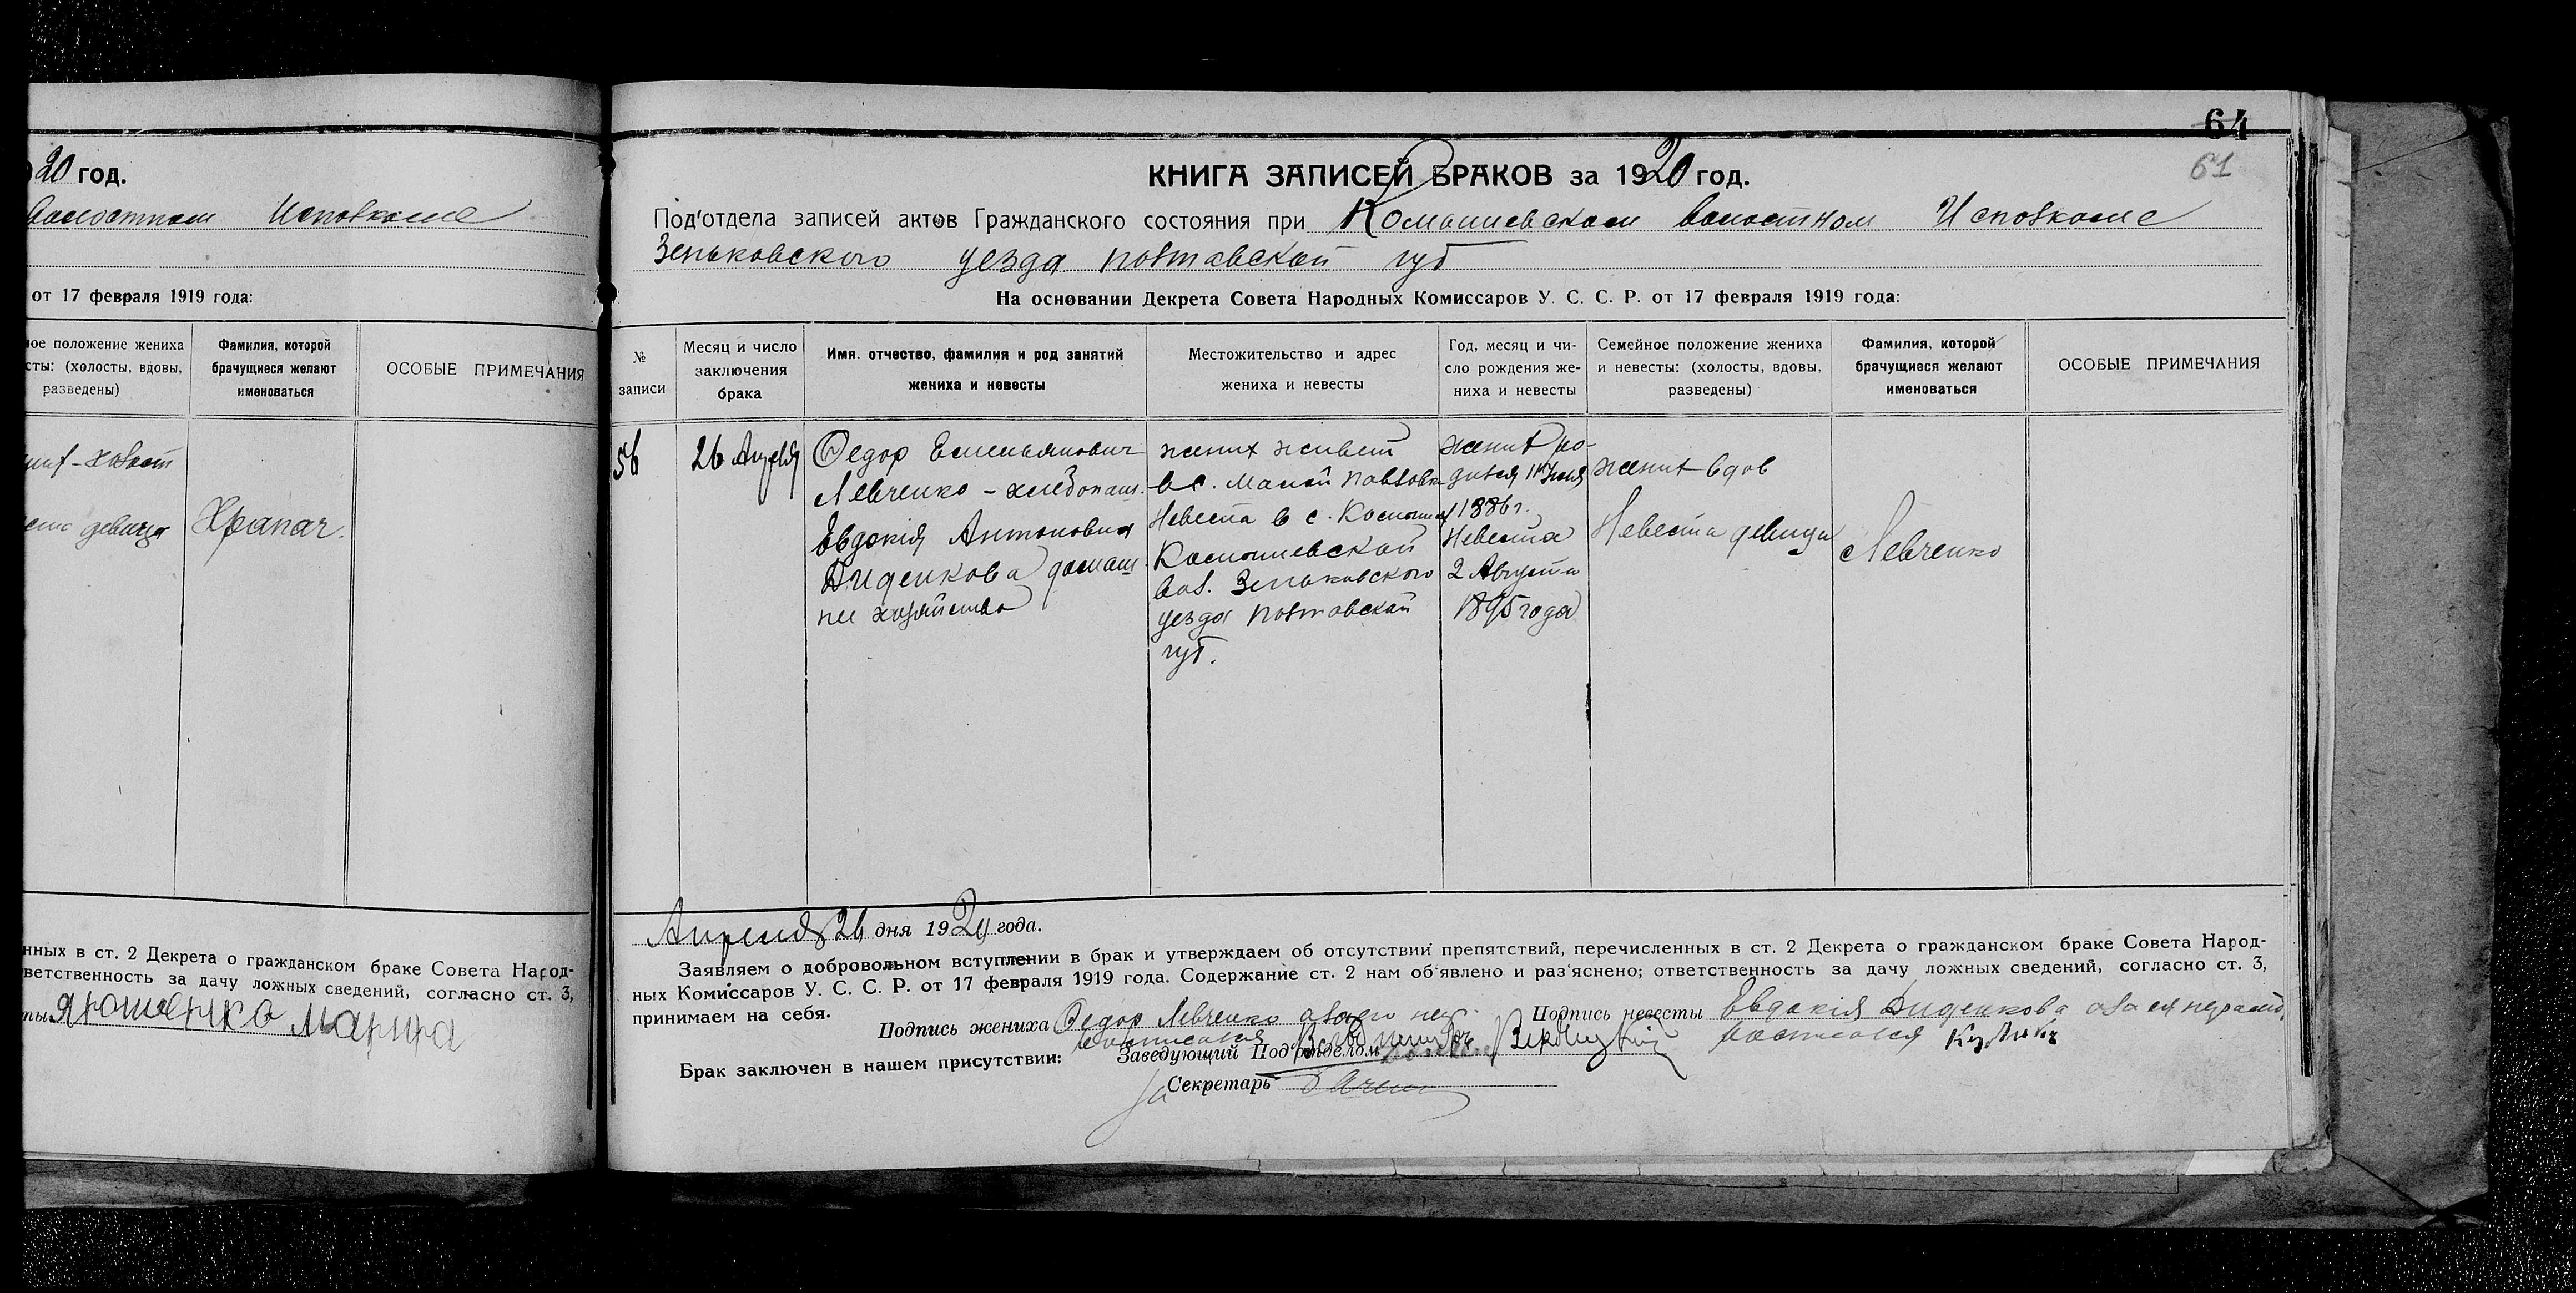 20 год.
волостном Исполкоме
от 17 февраля 1919 года:
ное положение жениха
сты: (холосты, вдовы,
разведены)
Фамилия, которой
брачущиеся желают
именоваться
ОСОБЫЕ ПРИМЕЧАНИЯ
холост
девица
Храпач.
нных в ст. 2 Декрета о гражданском браке Совета Народ-
ветственность за дачу ложных сведений, согласно ст. 3,
ты
64
61
КНИГА ЗАПИСЕЙ БРАКОВ за 1920 год.
Под'отдела записей актов Гражданского состояния при Комышевском волостном Исполкоме
Зеньковского уезда полтавской губ
На основании Декрета Совета Народных Комиссаров У. С. С. Р. от 17 февраля 1919 года:
№
записи
Месяц и число
заключения
брака
Имя, отчество, фамилия и род занятий
жениха и невесты
Местожительство и адрес
жениха и невесты
Год, месяц и чи-
сло рождения же-
ниха и невесты
Семейное положение жениха
и невесты: (холосты, вдовы,
разведены)
Фамилия, которой
брачущиеся желают
именоваться
ОСОБЫЕ ПРИМЕЧАНИЯ
56
26 Апреля
Федор Емельянович
Левченко - хлебопаш.
Евдокія Антоновна
Диденкова домаш
нее хозяйство
жених живет
в с. Малой Павловке
Невеста в с. Комышах
Комышевской
вол. Зеньковского
уезда полтавской
губ.
жених ро-
дился
1886 г.
Невеста
2 Августа
1895 года
жених вдов
Невеста девица
Левченко
Апреля 26 дня 1920 года.
Заявляем о добровольном вступлении в брак и утверждаем об отсутствии препятствий, перечисленных в ст. 2 Декрета о гражданском браке Совета Народ-
ных Комиссаров У. С. С. Р. от 17 февраля 1919 года. Содержание ст. 2 нам об'явлено и раз'яснено; ответственность за дачу ложных сведений, согласно ст. 3,
принимаем на себя.
Подпись жениха Федор Левченко а за его
Подпись невесты Евдокія Диденкова а за ея неграмот.
росписался Кулик
Брак заключен в нашем присутствии:
Заведующий Под'отделом
Секретарь